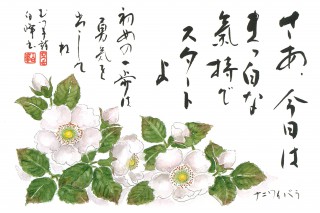 さあ、今日は
まっ白な
気持で
スタート
よ
初めの一歩は
勇気を
出して
ね
ナニワイバラ